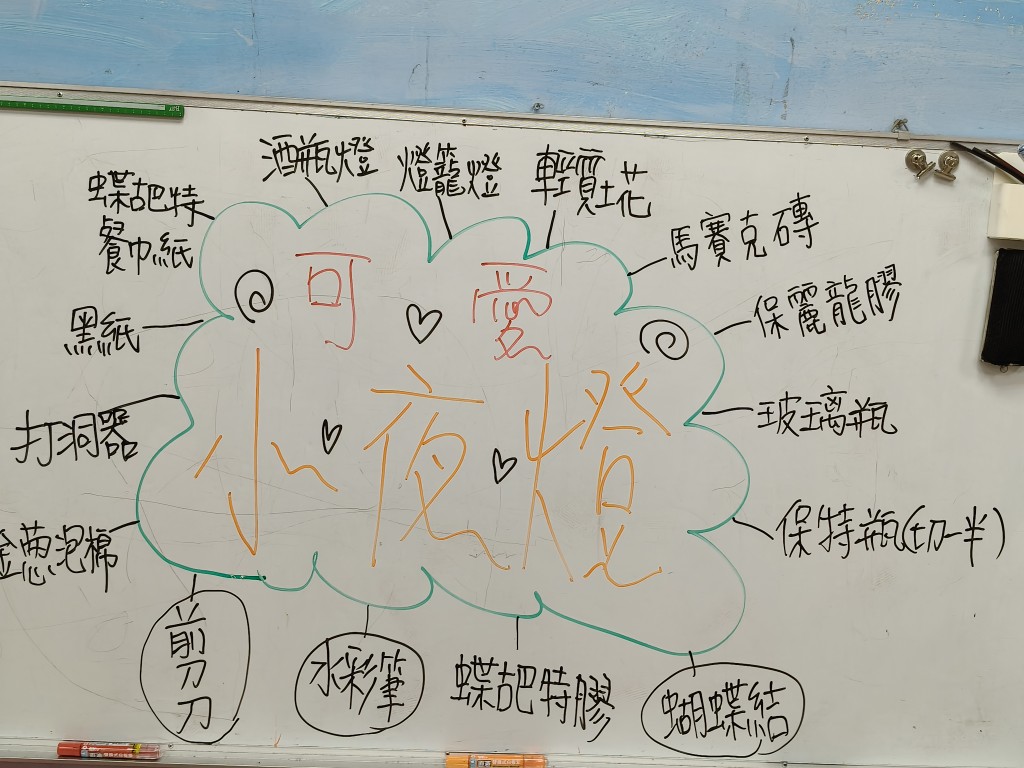 酒瓶燈
燈籠燈
輕質土花
蝶芭特
餐巾紙
馬賽克磚
黑紙
可愛
保麗龍膠
小夜燈
打洞器
玻璃瓶
泡棉
保特瓶(切一半)
剪刀
水彩筆
蝶芭特膠
蝴蝶結